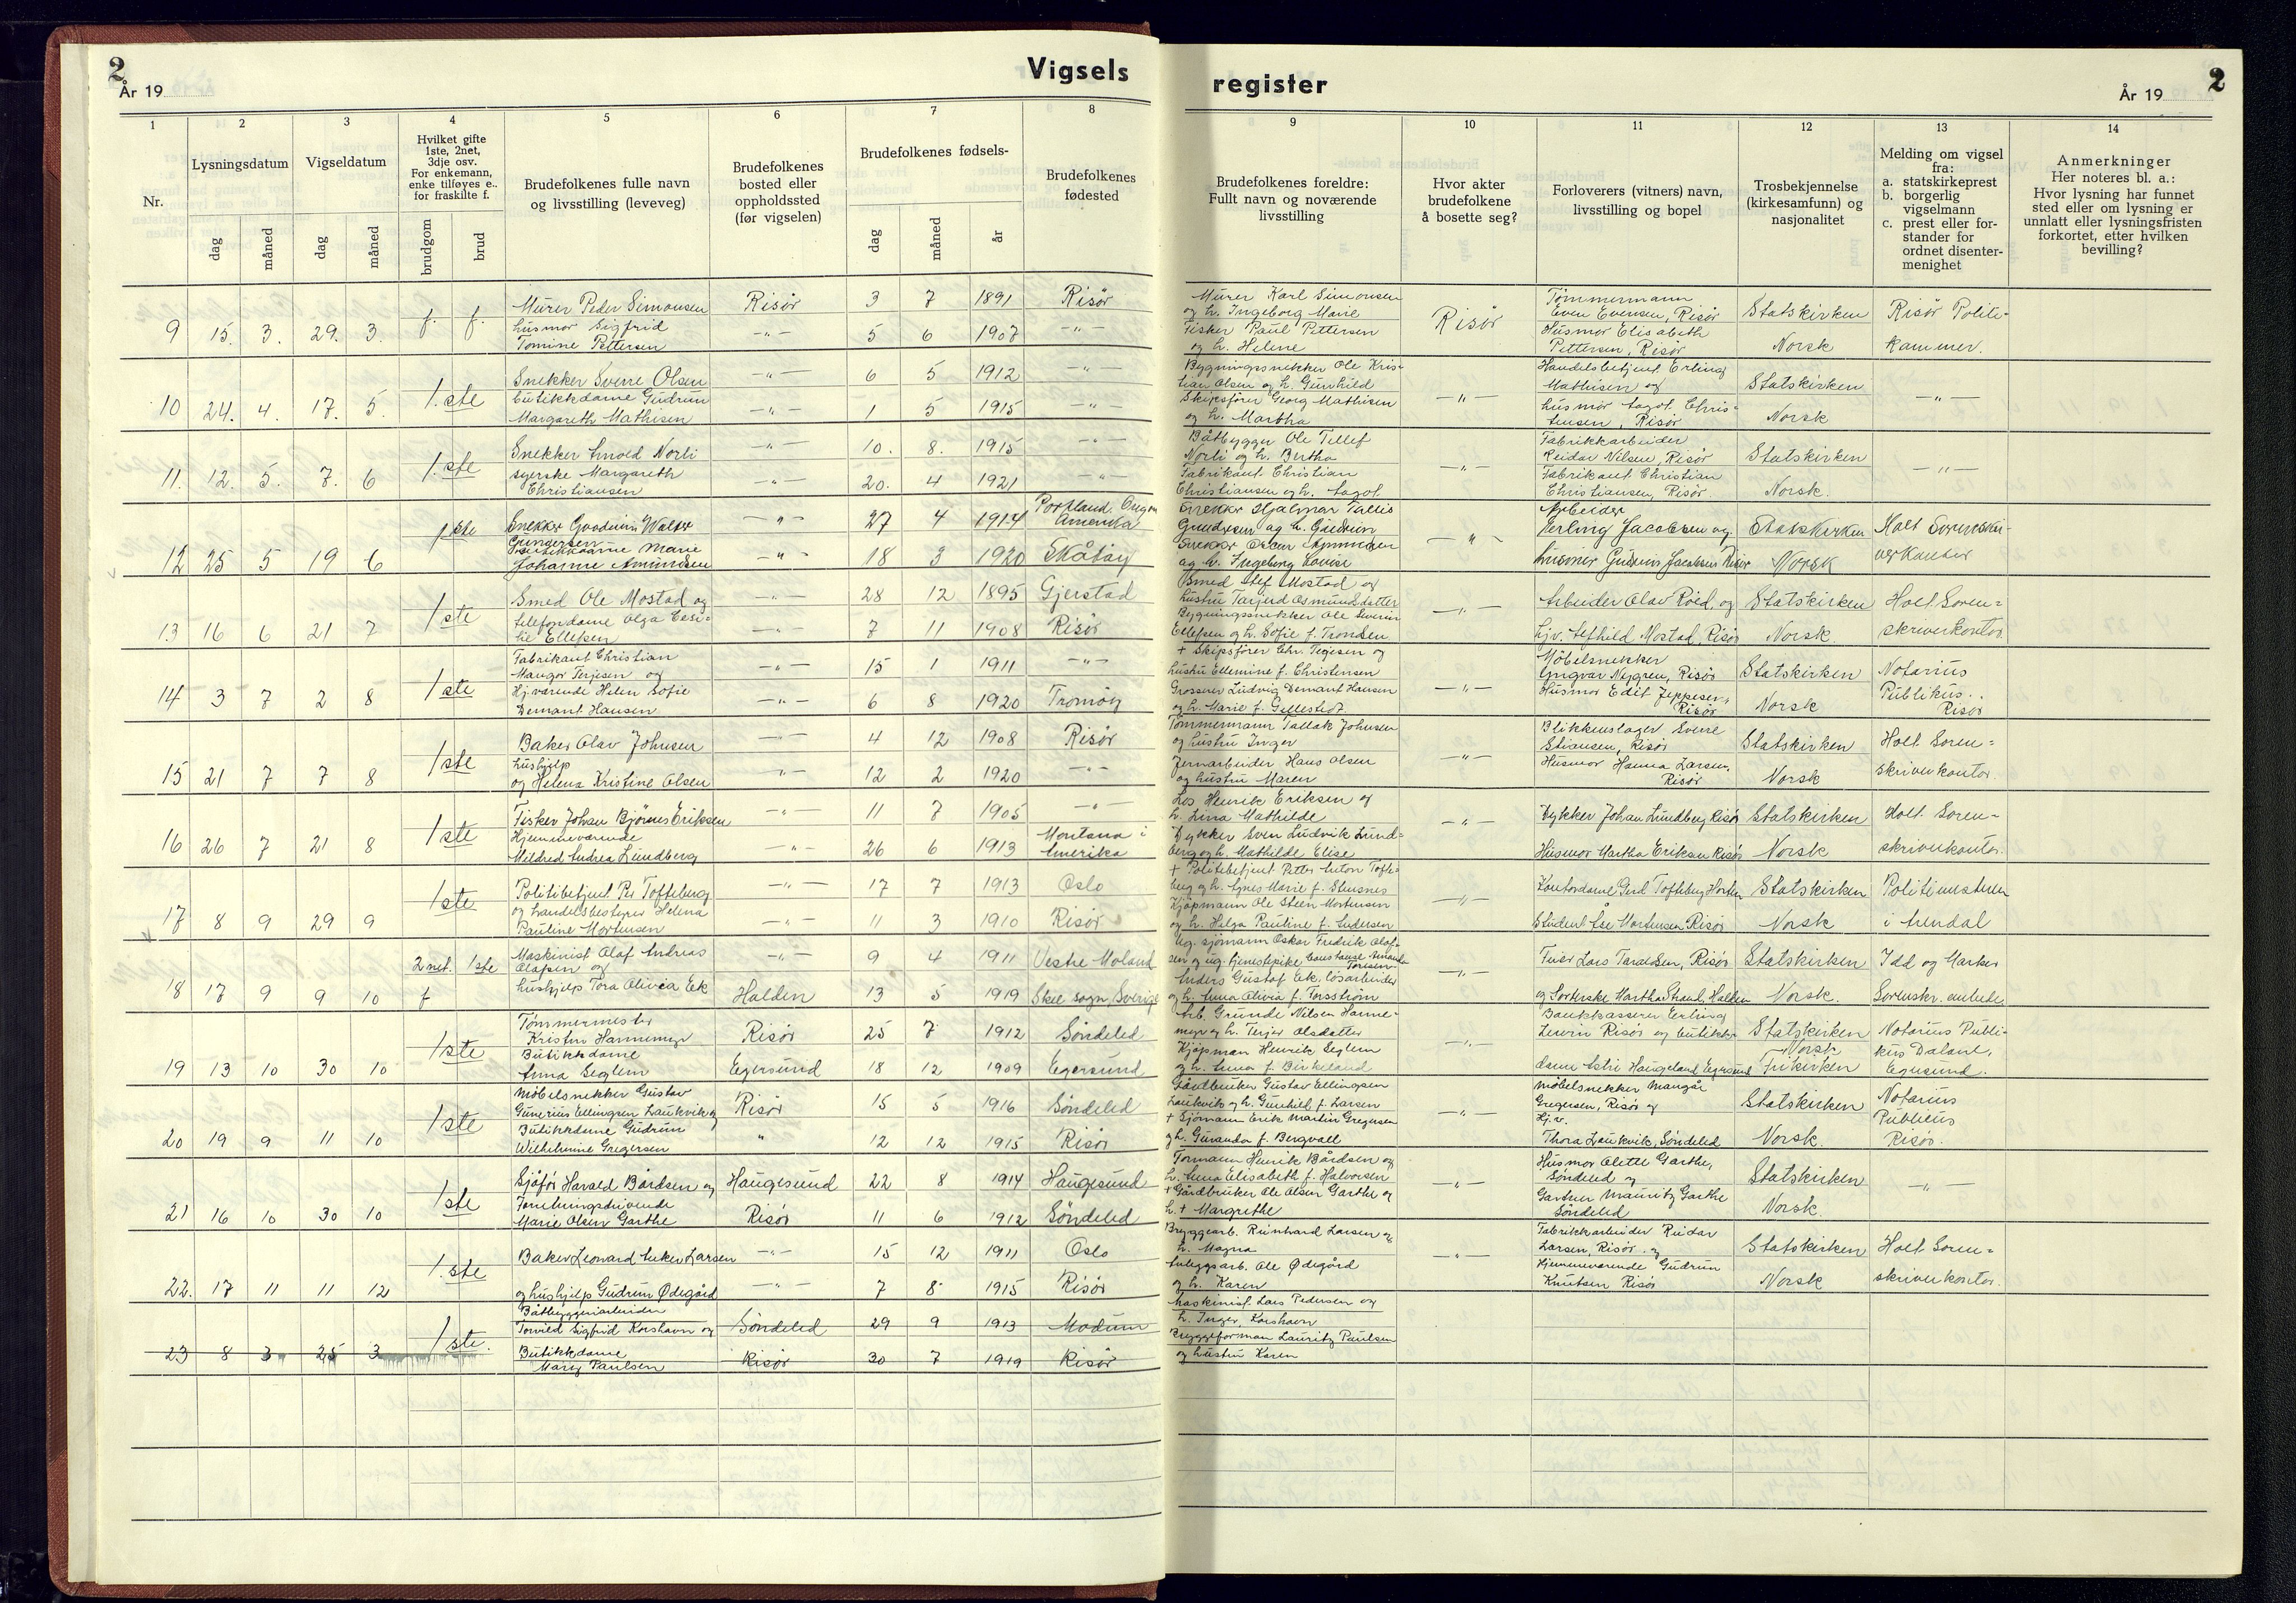 2
År 19
Vigsels
register
År 19
2
1
2
3
4
5
6
7
8
9
10
11
12
13
14
Nr.
Lysningsdatum
dag
måned
Vigseldatum
dag
måned
Hvilket gifte
1ste, 2net,
3dje osv.
For enkemann,
enke tilføyes e..
for fraskilte f.
brudgom
brud
Brudefolkenes fulle navn
og livsstilling (leveveg)
Brudefolkenes
bosted eller
oppholdssted
(før vigselen)
Brudefolkenes fødsels-
dag
måned
år
Brudefolkenes
fødested
Brudefolkenes foreldre:
Fullt navn og noværende
livsstilling
Hvor akter
brudefolkene
å bosette seg?
Forloverers (vitners) navn,
livsstilling og bopel
Trosbekjennelse
(kirkesamfunn) og
nasjonalitet
Melding om vigsel
fra:
a. statskirkeprest
b. borgerlig
vigselmann
c. prest eller for-
stander for
ordnet disenter-
menighet
Anmerkninger
Her noteres bl. a.:
Hvor lysning har funnet
sted eller om lysning er
unnlatt eller lysningsfristen
forkortet, etter hvilken
bevilling?
9 15. 3. 29. 3. f. f.
Murer Peder Simonsen
husmor Sigfrid
Tomine Pettersen
Risør 3 7 1891 Risør
—"— 5 6 1907 —"—
Murer Karl Simonsen
og h. Ingeborg Marie
Fisker Paul Pettersen
og h. Helene
Risør
Tømmermann
Even Evensen, Risør
Husmor Elisabeth
Pettersen, Risør
Statskirken
Norsk
Risør Politi-
kammer.
10 24. 4. 17. 5. 1.ste
Snekker Sverre Olsen
butikkdame Gudrun
Margareth Mathisen
—"— 6 5 1912 —"—
—"— 1 5 1915 —"—
Bygningssnekker Ole Kris-
tian Olsen og h. Gunhild
Skipsfører Georg Mathisen
og h. Martha
—"—
Handelsbetjent Erling
Mathisen og
husmor Aagot Chris-
tensen, Risør
Statskirken
Norsk
—"—
11. 12. 5. 7. 6 1.ste
Snekker Arnold Norli
syerske Margareth
Christiansen
—"— 10. 8. 1915 —"—
—"— 20. 4 1921 —"—
Båtbygger Ole Tellef
Norli og h. Bertha
Fabrikant Christian
Christiansen og h. Aagot
—"—
Fabrikkarbeider
Reidar Nilsen, Risør
Fabrikant Christian
Christiansen, Risør.
Statskirken
Norsk.
—"—
12 25 5 19 6 1ste
Snekker Goodwin Walter
Gundersen
Butikkdame Marie
Johanne Amundsen
—"— 27 4 1914 Portland. Oregon
Amerika
—"— 18 3 1920 Skåtøy
Snekker Hjalmar
Gundersen og h. Gudrun
Snekker Oscar Amundsen
og h. Ingeborg Lovise
—"—
Arbeider
Erling Jacobsen og
husmor Gudrun Jacobsen Risør
Statskirken
Norsk
Holt Sorenskri-
verkontor
13 16 6 21 7 1ste
Smed Ole Mostad og
telefondame Olga Cesi-
lie Ellefsen
—"— 28 12 1895 Gjerstad
—"— 7 11 1908 Risør
Smed Alef Mostad og
hustru Tarjerd Osmundsdatter
Bygningssnekker Ole Severin
Ellefsen og h. Sofie f. Trondsen
—"—
Arbeider Olav Røed, og
hjv. Alfhild Mostad, Risør
Statskirken
Norsk.
Holt Soren=
skriverkontor
14 3 7 2 8 1ste
Fabrikant Christian
Mangor Terjesen og
Hj.værende Helen Sofie
Demant Hansen
—"— 15 1 1911 —"—
—"— 6 8 1920 Tromøy
+ Skipsfører Chr. Terjesen og
hustru Ellemine f. Christensen
Grosserer Ludvig Demant Hansen
og h. Marie f. Gellestedt.
—"—
Møbelsnekker
Yngvar Nygren, Risør
Husmor Edit Jeppesen,
Risør
Statskirken
Norsk
Notarius
Publikus.
Risør
15 21 7 7 8 1ste
Baker Olav Johnsen
hushjelp
og Helena Kristine Olsen
—"— 4 12 1908 Risør
—"— 12 2 1920 —"—
Tømmermann Tallak Johnsen
og hustru Inger
Jernarbeider Hans Olsen
og hustru Maren
—"—
Blikkenslager Sverre
Stiansen, Risør
Husmor Hanna Larsen,
Risør
Statskirken
Norsk
Holt Soren=
skriverkontor
16 26 7 21 8 1ste
Fisker Johan Bjørnes Eriksen
Hjemmeværende
Mildred Andrea Lundberg
—"— 11 7 1905 —"—
—"— 26 6 1913 Montana i
Amerika
Los Henrik Eriksen og
h. Lina Mathilde
Dykker Sven Ludvik Lund=
berg og h. Mathilde Elise
—"—
Dykker Johan Lundberg Risør
Husmor Martha Eriksen Risør
Statskirken
Norsk
Holt Soren-
skriverkontor.
17 8 9 29 9 1ste
Politibetjent Per Tofteberg
og handelsbestyrer Helena
Pauline Mortensen
—"— 17 7 1913 Oslo
—"— 11 3 1910 Risør
+ Politibetjent Petter Anton Tofte-
berg og h. Agnes Marie f.
Kjøpmann Ole Steen Mortensen
og h. Helga Pauline f. Andersen
—"—
Kontordame Gerd Tofteberg Horten
Student Åse Mortensen Risør
Statskirken
Norsk
Politimesteren
i Arendal
18 17 9 9 10 2net. f 1ste
Maskinist Olaf Andreas
Olafsen og
hushjelp Tora Olivia Ek
—"— 9 4 1911 Vestre Moland
Halden 13 5 1919 Skee sogn, Sverige
Ug. sjømann Oskar Fredrik Olaf-
sen og ug. tjenestepike Constanse Amanda
Anders Gustaf Ek, løsarbeider
og h. Anna Olivia f. Torsström
—"—
Lars Taraldsen, Risør
og Sorterske Hartha Strand, Halden
Statskirken
Norsk.
Idd og Marker
Sorenskr. embede
19 13 10 30 10 1ste
Tømmermester
Kristen Hammemyr
Butikkdame
Anna Seglem
Risør 25 7 1912 Søndeled
Egersund 18 12 1909 Egersund
Arb. Grunde Nilsen Hamme-
myr og h. Terjer Olsdatter
Kjøpman Henrik Seglem
og h. Anna f. Birkeland
—"—
Bankkasserer Erling
Levin Risør og butikk-
dame Astri Haugeland Egersund
Statskirken
Norsk
Frikirken
Notarius Publi-
kus Dalane,
Egersund.
20 19 9 11 10 1ste
Møbelsnekker Gustav
Gunerius Ellingsen Laukvik og
Butikkdame Gudrun
Wilhelmine Gregersen
Risør 15 5 1916 Søndeled
" 12 12 1915 Risør
Gårdbruker Gustav Ellingsen
Laukvik og h. Gunhild f. Larsen
+ Sjømann Erik Martin Gregersen
og h. Guranda f. Bergvall
—"—
Møbelsnekker Mangår
Gregersen, Risør og
Hj.v.
Thora Laukvik, Søndeled
Statskirken
Norsk.
Notarius
Publicus
Risør.
21 16 10 30 10 1ste
Sjåfør Harald Bårdsen og
Forretningsdrivende
Marie Olsen Garthe
Haugesund 22 8 1914 Haugesund
Risør 11 6 1912 Søndeled
Formann Henrik Bårdsen og
h. Anna Elisabeth f. Halvorsen
+ Gårdbruker Ole Olsen Garthe og
h. + Margrethe
—"—
Husmor Olette Garthe,
Søndeled og
Gartner Mauritz Garthe
Søndeled
Statskirken
Norsk.
—"—
22. 17 11 11 12 1.ste
Baker Leonard Anker Larsen
og hushjelp Gudrun Ødegård
—"— 15 12 1911 Oslo
—"— 7 8 1915 Risør
Bryggearb. Reinhard Larsen og
h. Magna
Anleggsarb. Ole Ødegård
og h. Karen
—"—
Fabrikkarbeider Reidar
Larsen, Risør. og
Hjemmeværende Gudrun
Knutsen Risør
Statskirken
Norsk
Holt Soren=
skriverkontor.
23 8 3 25 3 1ste.
Båtbyggeriarbeider
Torvild Sigfrid Korshavn og
Butikkdame
Mary Paulsen
Søndeled 29 9 1913 Modum
Risør 30 7 1919 Risør
Maskinist Lars Pedersen og
h. Inger, Korshavn
Bryggeforman Lauritz Paulsen
og hustru Karen